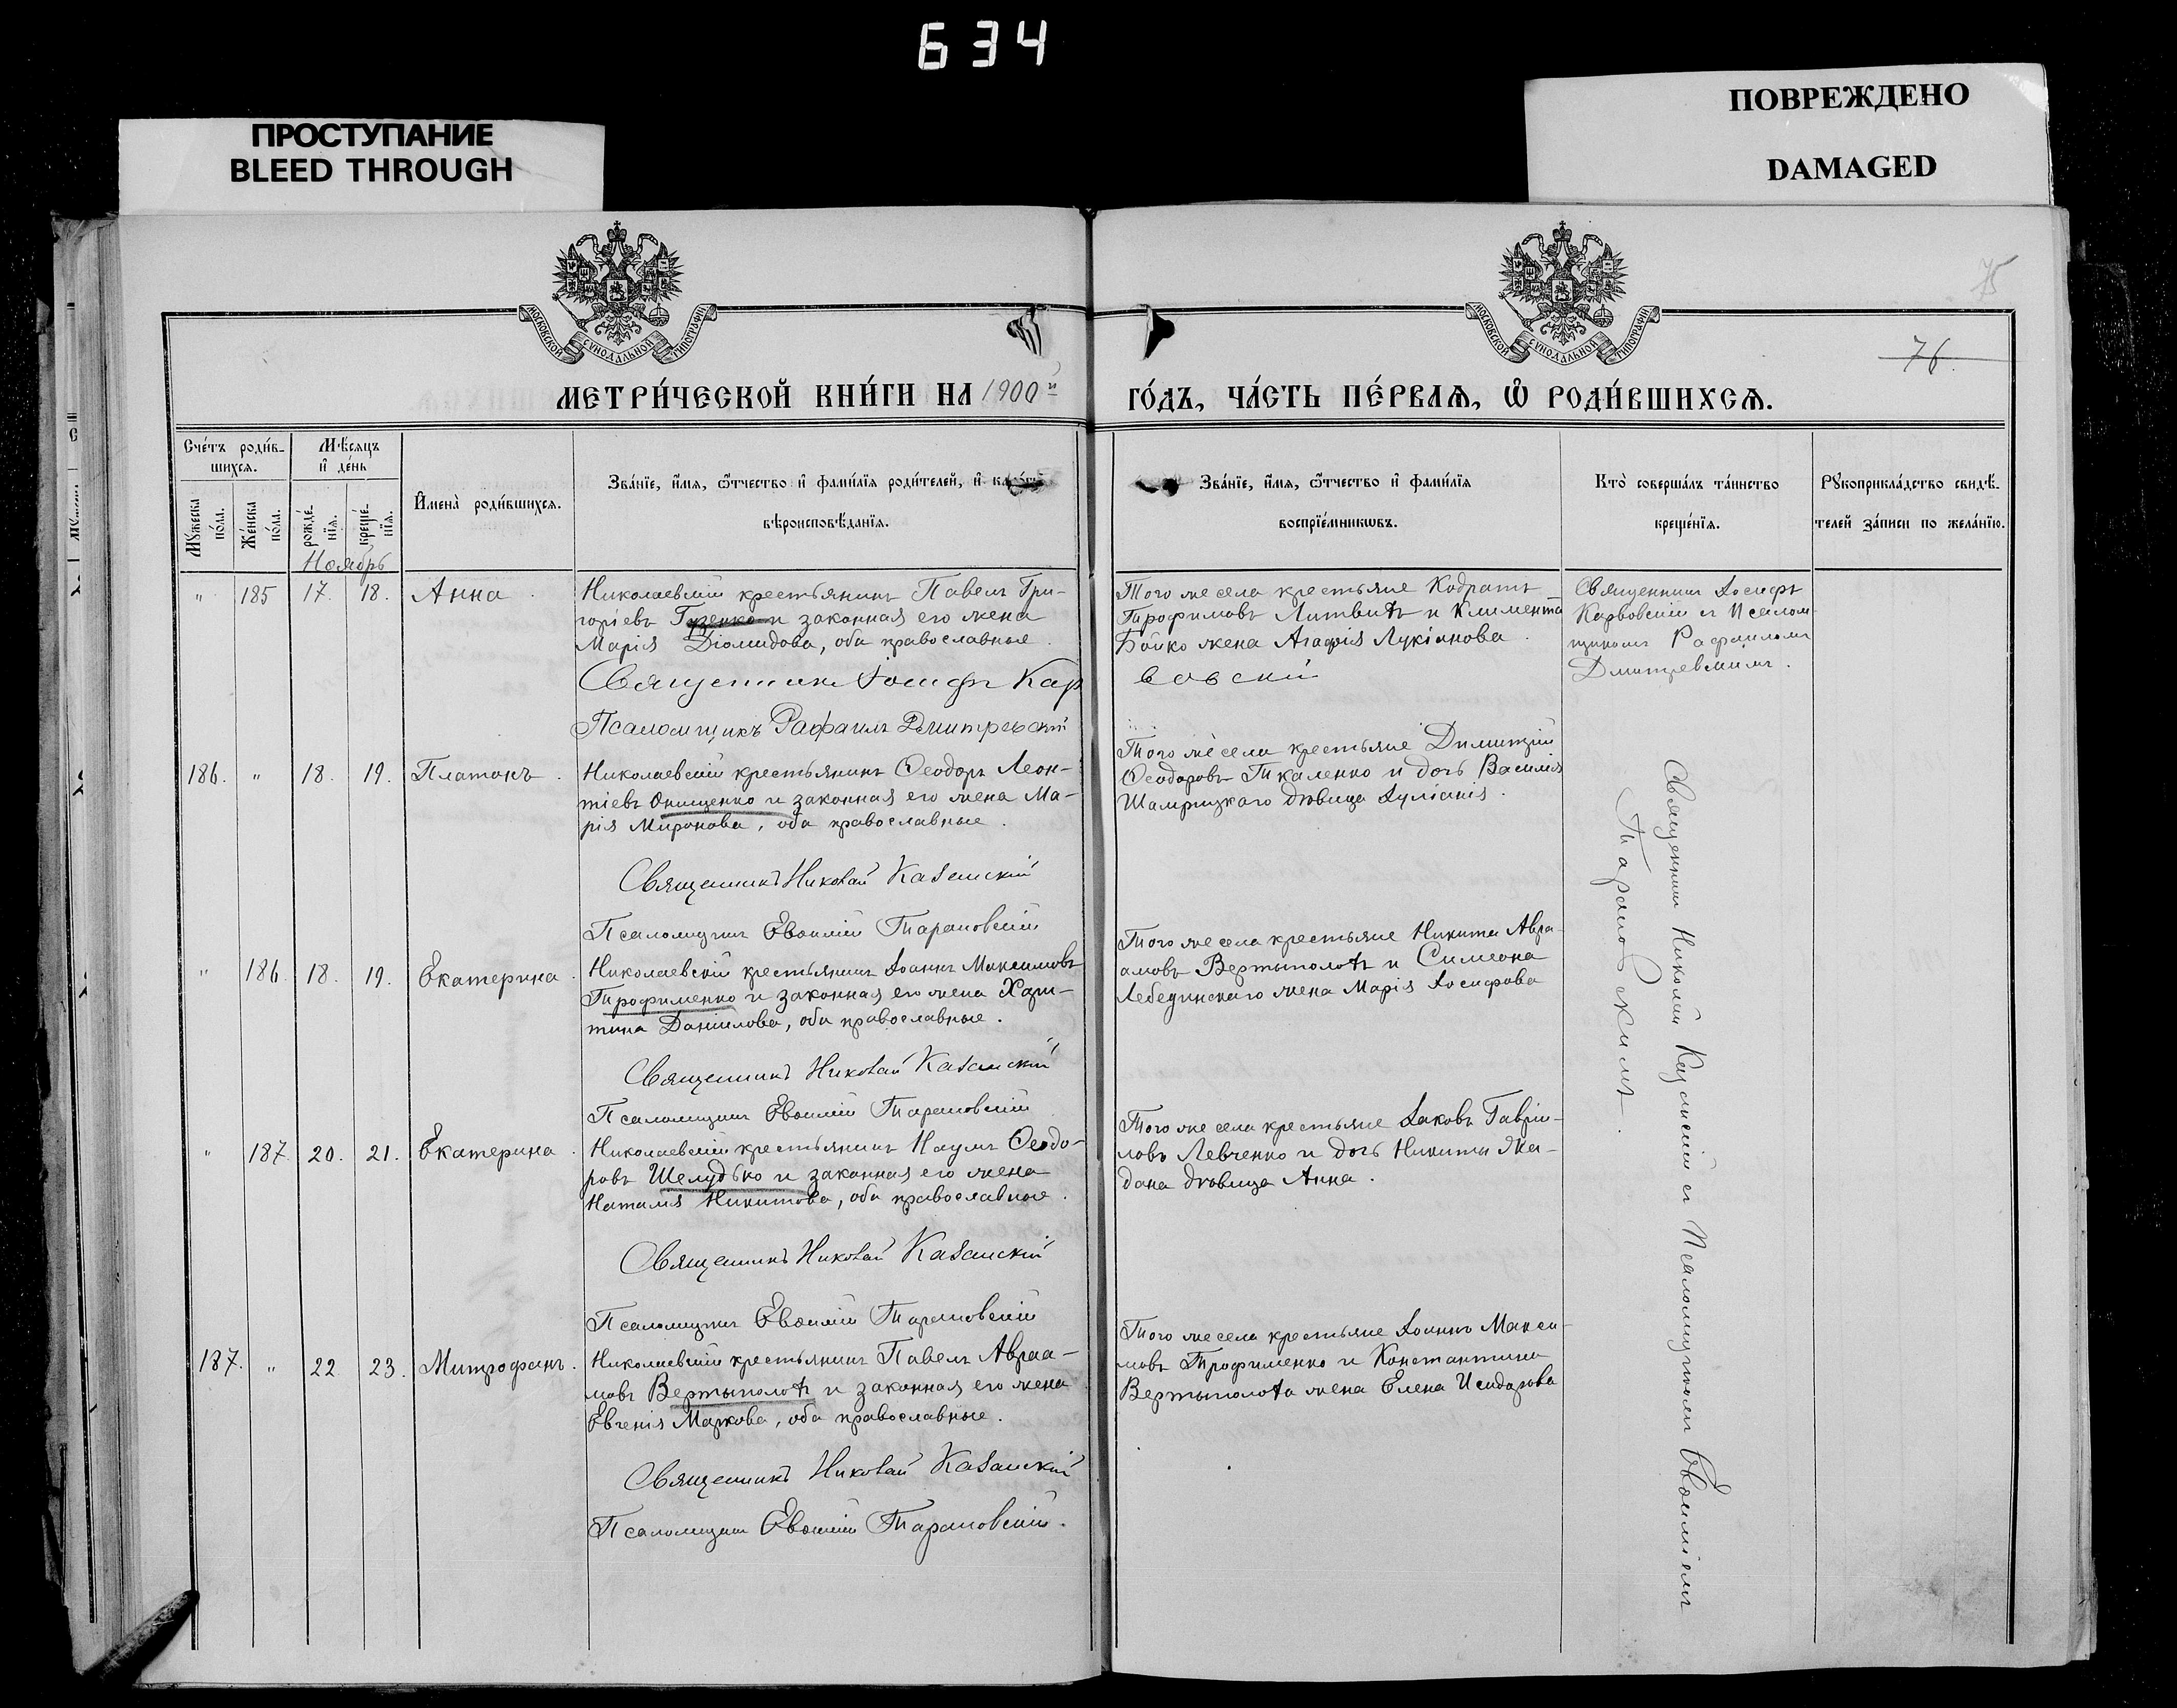 634
ПРОСТУПАНИЕ
BLEED THROUGH
ПОВРЕЖДЕНО
DAMAGED
МОСКОВСКОЙ СѴНОДАЛЬНОЙ ТИПОГРАФІИ
МОСКОВСКОЙ СѴНОДАЛЬНОЙ ТИПОГРАФІИ
75
76.
МЕТРИ́ЧЕСКОЙ КНИ́ГИ НА 1900й
ГО́ДЪ, ЧА́СТЬ ПЕ́РВАѦ, Ѡ҆ РОДИ́ВШИХСѦ.
Сче́тъ роди́в-
шихсѧ.
Мѣ́сѧцъ
и҆ де́нь
Мꙋ́жеска
по́ла.
Же́нска
по́ла.
рожде́-
нїѧ.
креще́-
нїѧ.
И҆мена̀ роди́вшихсѧ.
Зва́нїе, и҆́мѧ, ѻ҆́тчество и҆ фами́лїѧ роди́телей, и҆
вѣроисповѣ́данїѧ.
Зва́нїе, и҆́мѧ, ѻ҆́тчество и҆ фами́лїѧ
воспрїе́мникѡвъ.
Кто̀ соверша́лъ та́инство
креще́нїѧ.
Рꙋкоприкла́дство свидѣ́-
телей за́писи по жела́нїю.
Ноябрь
" 185 17. 18. Анна
Николаевскій крестьянинъ Павелъ Гри-
горіевъ Гузенко и законная его жена
Марія Діомидова, оба православные.
Священникъ Іосифъ Кар
вовскій
Псаломщикъ Рафаилъ Дмитревскій
Того же села крестьяне Кодратъ
Трофимовъ Литвинъ и Климента
Бойко жена Агафія Лукіанова.
Священникъ Іосифъ
Карвовскій съ Псалом-
щикомъ Рафаиломъ
Дмитревскимъ.
186. " 18. 19. Платонъ.
Николаевскій крестьянинъ Ѳеодоръ Леон-
тіевъ Онищенко и законная его жена Ма-
рія Миронова, оба православные.
Священникъ Николай Казанскій
Псаломщикъ Евѳимій Тарановскій
Того же села крестьяне Димитрій
Ѳеодоровъ Ткаленко и дочь Василія
Шамрицкаго дѣвица Іуліанія.
" 186. 18. 19. Екатерина.
Николаевскій крестьянинъ Іоаннъ Максимовъ
Трофименко и законная его жена Хари-
тина Даніилова, оба православные.
Священникъ Николай Казанскій
Псаломщикъ Евѳимій Тарановскій
Того же села крестьяне Никита Авра-
амовъ Вертыполохъ и Симеона
Лебединскаго жена Марія Іосифова
" 187. 20. 21. Екатерина.
Николаевскій крестьянинъ Наумъ Ѳеодо-
ровъ Шелудько и законная его жена
Наталія Никитова, оба православные.
Священникъ Николай Казанскій
Псаломщикъ Евѳимій Тарановскій
Того же села крестьяне Іаковъ Гаврии-
ловъ Левченко и дочь Никиты Жа-
дана дѣвица Анна.
187. " 22 23. Митрофанъ.
Николаевскій крестьянинъ Павелъ Авраа-
мовъ Вертыполохъ и законная его жена
Евгенія Маркова, оба православные.
Священникъ Николай Казанскій
Псаломщикъ Евѳимій Тарановскій.
Того же села крестьяне Іоаннъ Макси-
мовъ Трофименко и Константина
Вертыполоха жена Елена Исидорова
Священникъ Николай Казанскій съ Псаломщикомъ Евѳиміемъ
Тарановскимъ.